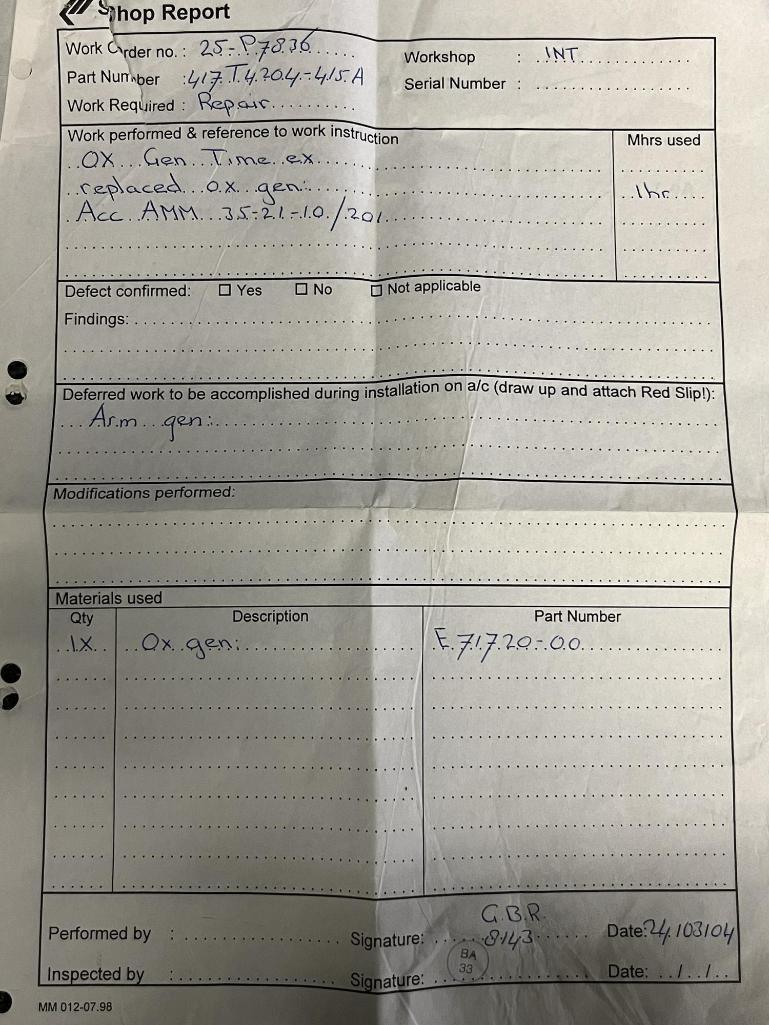 Shop Report
Work Order no.: 25-P7836
Workshop : INT
Part Number : 417T4204-415A
Serial Number :
Work Required : Repair
Work performed & reference to work instruction
Mhrs used
OX Gen Time ex
replaced ox gen:
1hr
Acc AMM 35-21-10/201
Defect confirmed: ☐ Yes ☐ No ☐ Not applicable
Findings:
Deferred work to be accomplished during installation on a/c (draw up and attach Red Slip!):
Arm gen:
Modifications performed:
Materials used
Qty Description Part Number
1X Ox gen: E71720-00
G.B.R.
Performed by : Signature: 8143 Date: 24/03/04
BA
33
Inspected by : Signature: Date: ../../..
MM 012-07.98